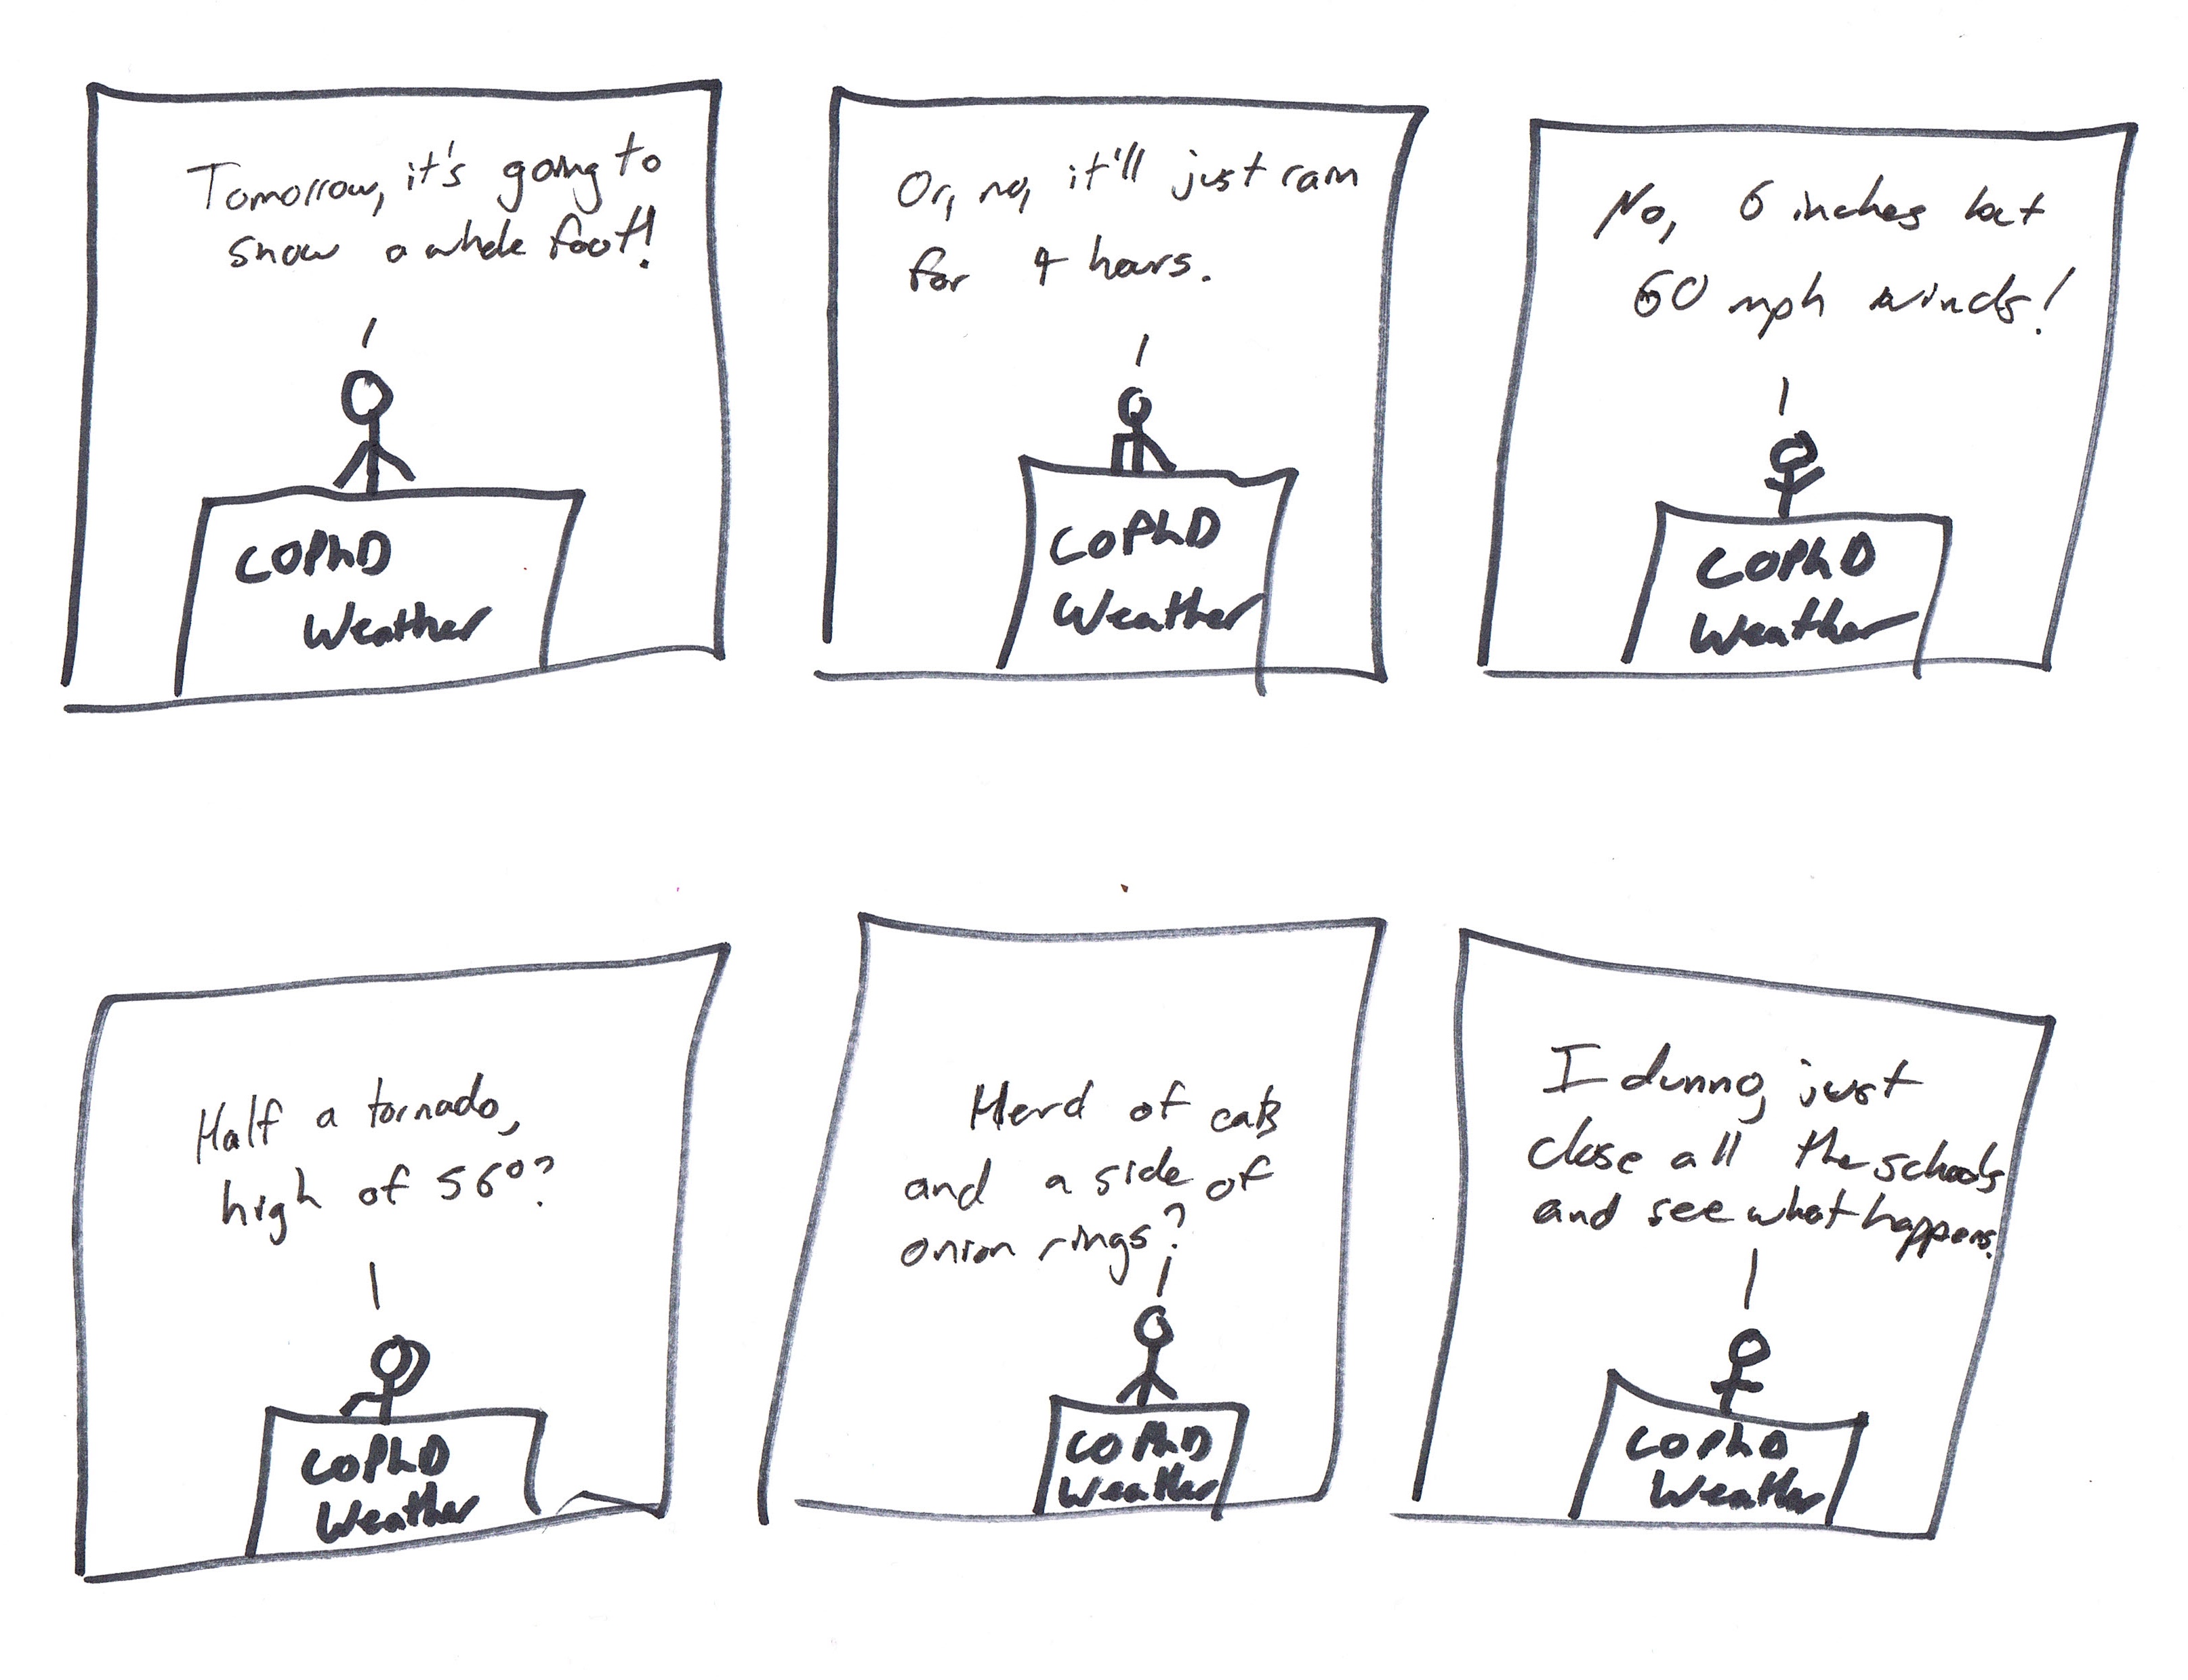 Tomorrow, it's going to
snow a whole foot!
COPhD
Weather
Or, no, it'll just rain
for 4 hours.
COPhD
Weather
No, 6 inches but
60 mph winds!
COPhD
Weather
Half a tornado,
high of 56°?
COPhD
Weather
Herd of cats
and a side of
onion rings?
COPhD
Weather
I dunno, just
close all the schools
and see what happens.
COPhD
Weather